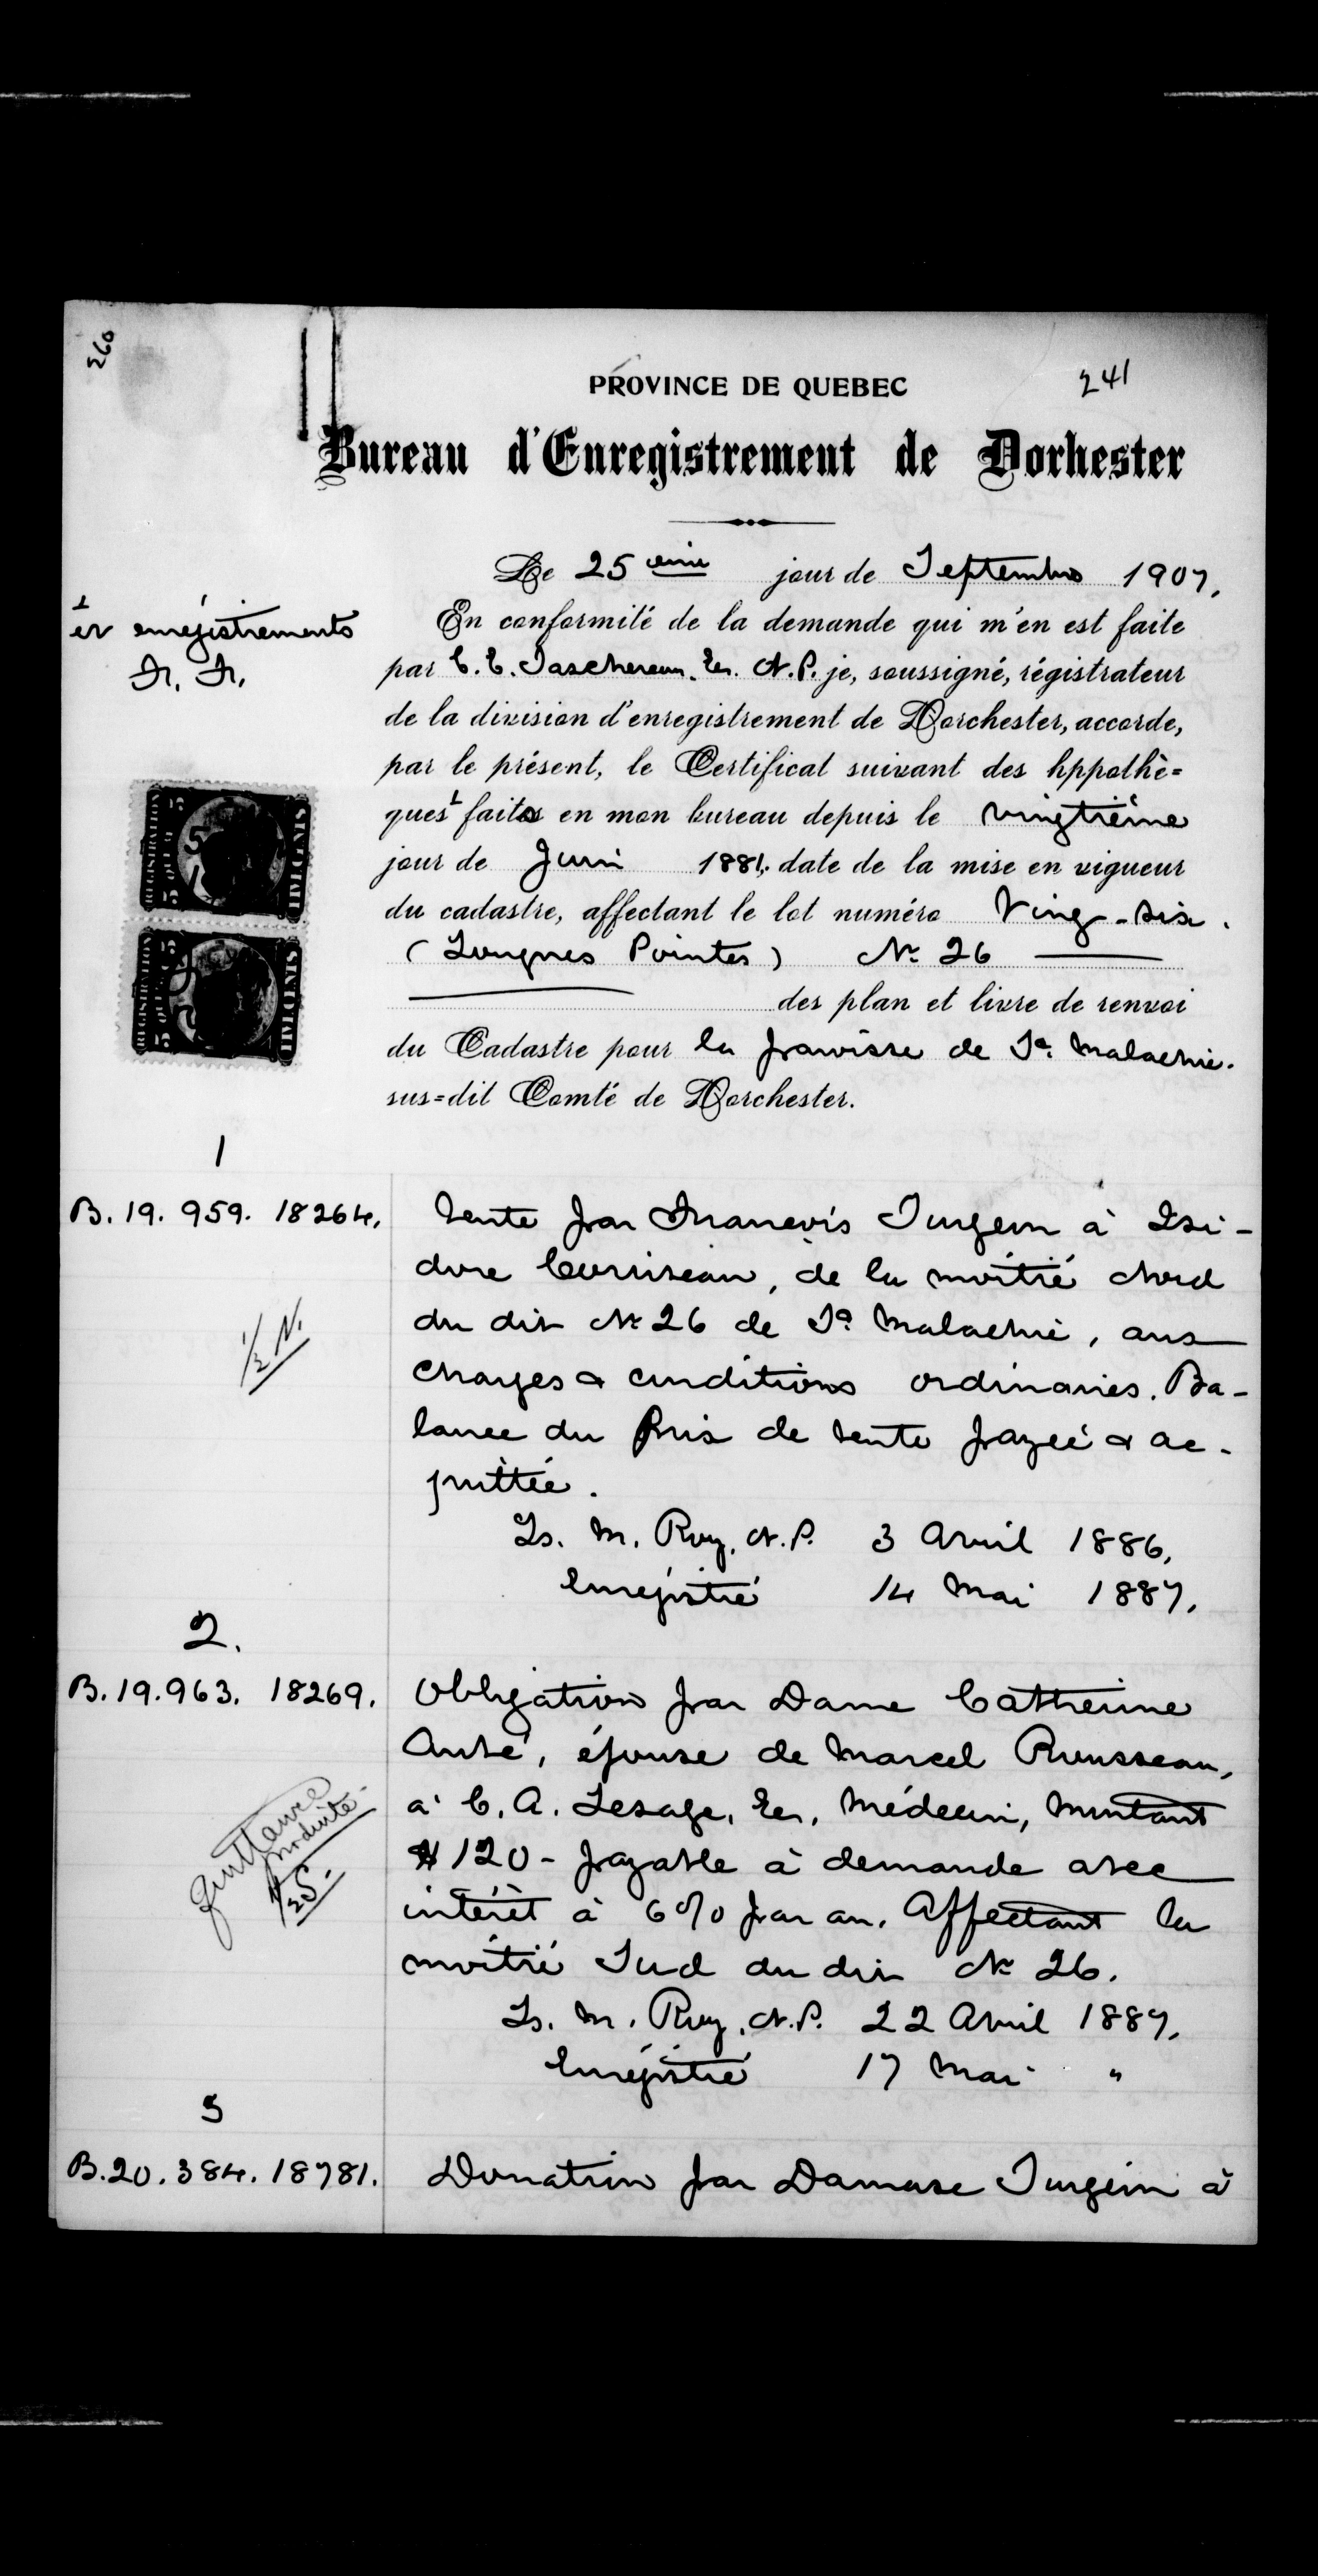 260
241
PROVINCE DE QUEBEC
Bureau d'Enregistrement de Dorhester
Le 25 eme jour de Septembre 1907,
1
et enregistrements
En conformité de la demande qui m'en est faite
par C. E. Taschereau. Er. N.P. je, soussigné, régistrateur
de la division d'enregistrement de Dorchester, accorde,
par le présent, le Certificat suivant des hppothè=
ques 1 faites en mon bureau depuis le vingtième
jour de Juin 1881, date de la mise en vigueur
du cadastre, affectant le lot numéro Ving-six.
(Longues Pointes) No 26
des plan et livre de renvoi
du Cadastre pour la paroisse de St. Malachie.
sus=dit Comté de Dorchester.
1
B. 19. 959. 18264.
Vente par Francois Turgeon à Isi-
dore Corriveau, de la moitié Nord
du dit No 26 de St. Malachie, aux
charges & conditions ordinaires. Ba-
lance du Prix de vente payée & ac-
quittée.
1/2 N.
Ls. M. Roy, N.P. 3 Avril 1886,
Enregistré 14 Mai 1887,
2.
B. 19. 963. 18269.
Obligation par Dame Catherine
Audé, épouse de Marcel Rousseau,
à C. A. Lesage, Er, Médecin, Montant
$120- payable à demande avec
intérêt à 6% par an. Affectant la
moitié Sud du dit No 26.
Quittance
produite.
1/2 S.
Ls. M. Roy, N.P. 22 Avril 1887,
Enregistré 17 Mai "
3
B. 20. 384. 18781.
Donation par Damase Turgeon à